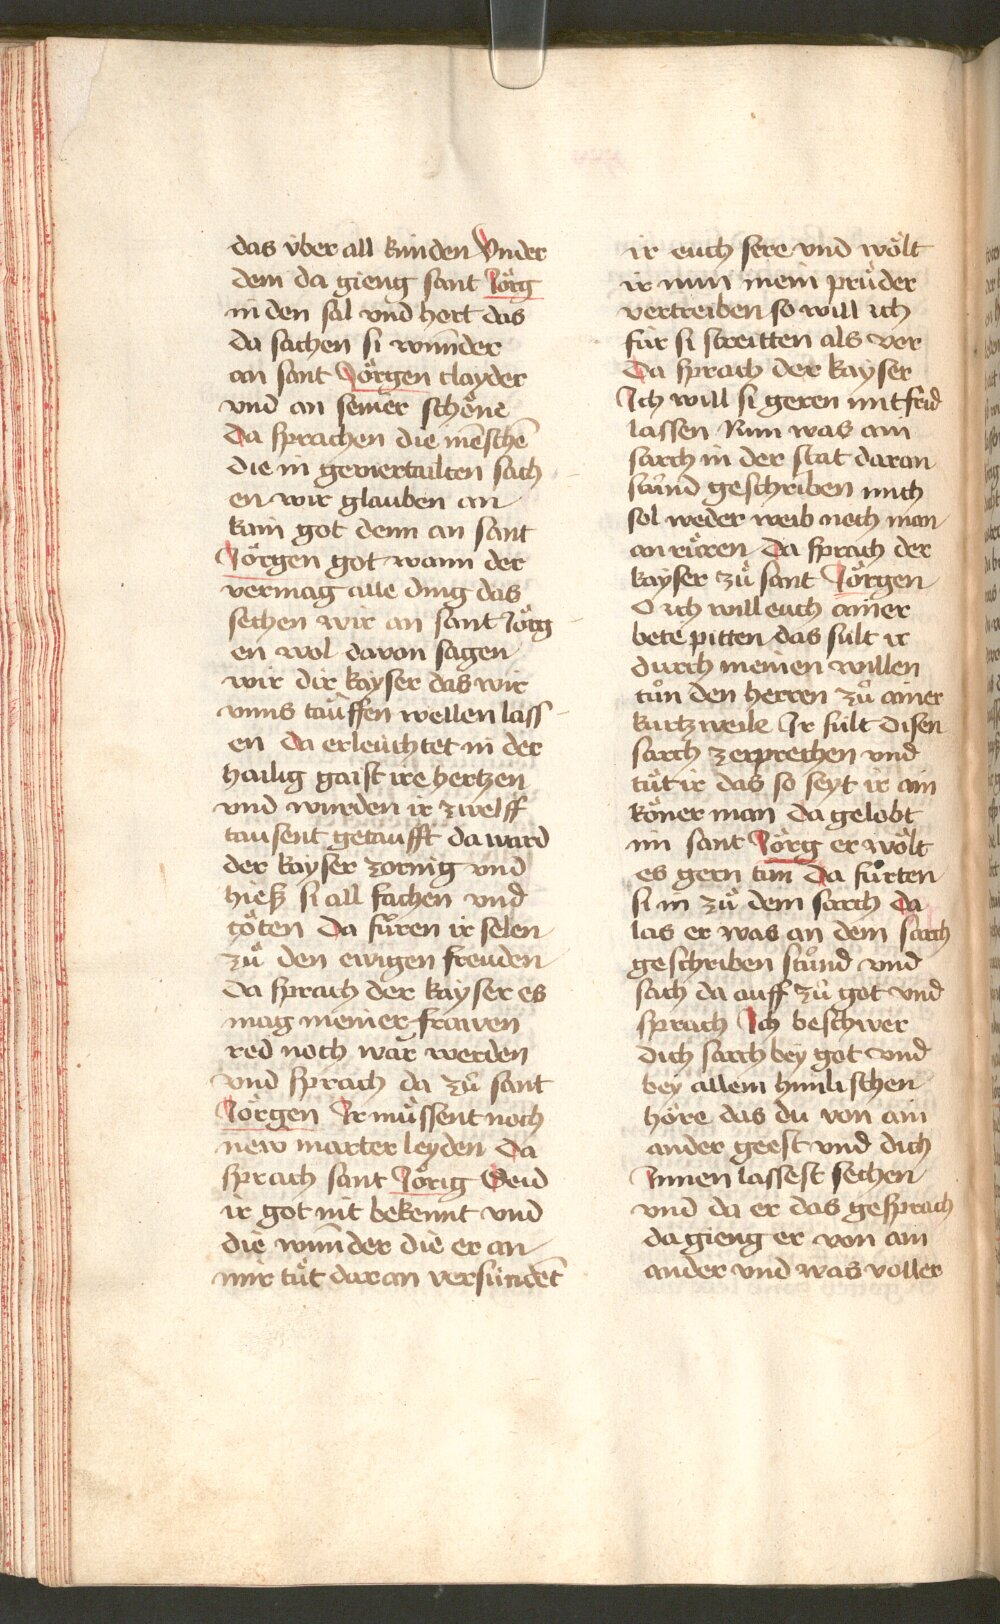 das v̈ber all kunden Vnder
dem da gieng sant Jörg
in den sal vnd hort das
da sachen si wunder
an sant Jörgen clayder
vnd an seiner schöne
Da sprachen die mēschē
die in geviertailten sach
en wir glauben an
kain got denn an sant
Jörgen got wann der
vermag alle ding das
sechen wir an sant Jörg
en wol davon sagen
wir dir kayser das wir
vnns tauffen wellen lass
en Da erleuchtet in der
hailig gaist ire hertzen
vnd wurden ir zwelff
tausent getaufft da ward
der kayser zornig vnd
hieß si all fachen vnd
töten Da fůren ir selen
zů den ewigen freuden
Da sprach der kayser es
mag meiner frawen
red noch war werden
vnd sprach da zů sant
Jörgen Ir müssent noch
new marter leyden Da
sprach sant Jörig Seid
ir got nit bekennt vnd
die wunder die er an
mir tůt daran versündet
ir euch sere vnd wölt
ir nun mein prüder
vertreiben so will ich
für si streitten als ver
Da sprach der kayser
Ich will si geren mit frid
lassen Nun was ain
sarch in der stat daran
stůnd geschriben mich
sol weder weib noch man
an rüren Da sprach der
kayser zů sant Jörgen
O ich will euch ainer
bete pitten das sult ir
durch meinen willen
tůn den herren zů ainer
kurtzweile Ir sult disen
sarch zerprechen vnd
tůt ir das so seyt ir ain
köner man da gelobt
im sant Jörg er wölt
es gern tun Da fůrten
si in zů dem sarch da
las er was an dem sarch
geschriben stůnd vnd
sach da auff zů got vnd
sprach Ich beschwer
dich sarch bey got vnd
bey allem himlischen
höre das du von ain
ander geest vnd dich
Innen lassest sechen
vnd da er das gesprach
da gieng er von ain
ander vnd was voller